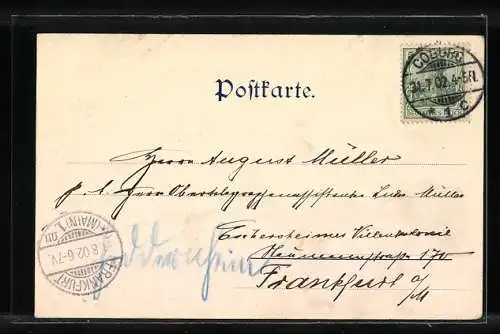 Postkarte.
COBURG
31.7.02.4-5N.
* 1 c
Herrn August Müller
p. A. Herrn Obertelegraphenassistenten Ludw. Müller
Eschersheimer Villenkolonie
Haumannstraße 170
Frankfurt a/M
FRANKFURT (MAIN) 1.
1.8.02.6-7V.